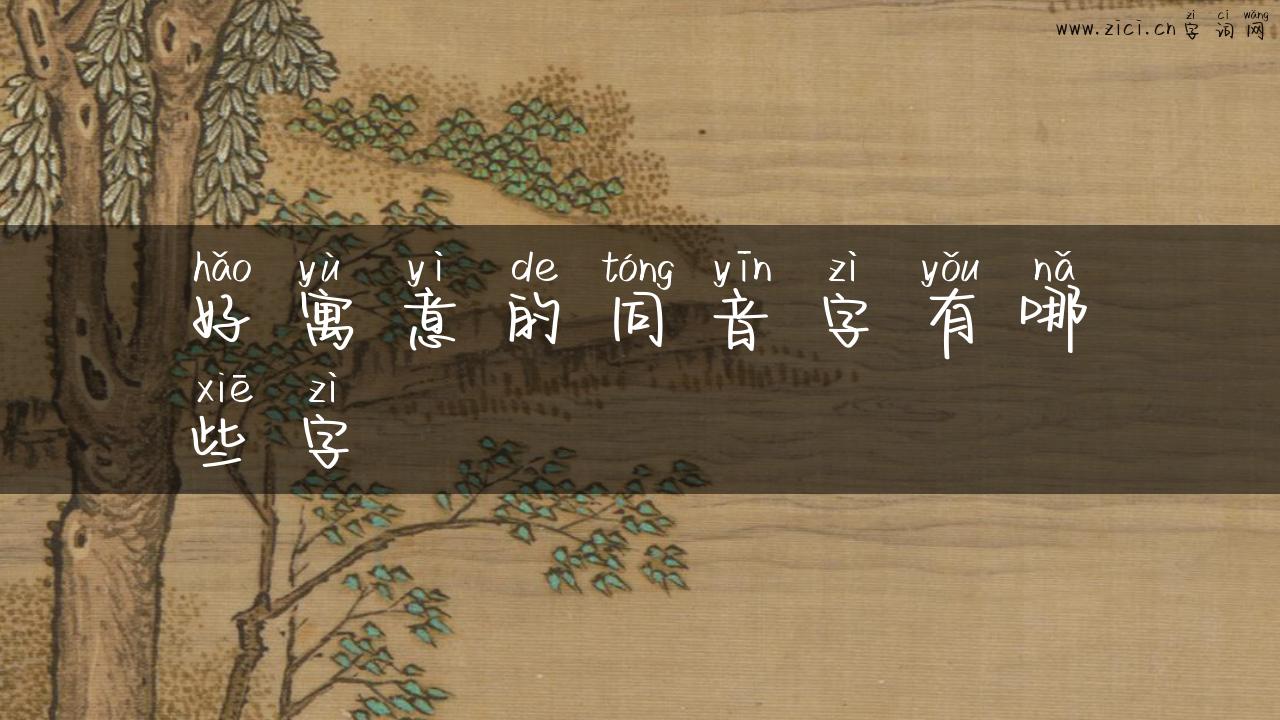 zì cí wǎng
www.zici.cn 字词网
hǎo yù yì de tóng yīn zì yǒu nǎ
好寓意的同音字有哪
xiē zì
些字